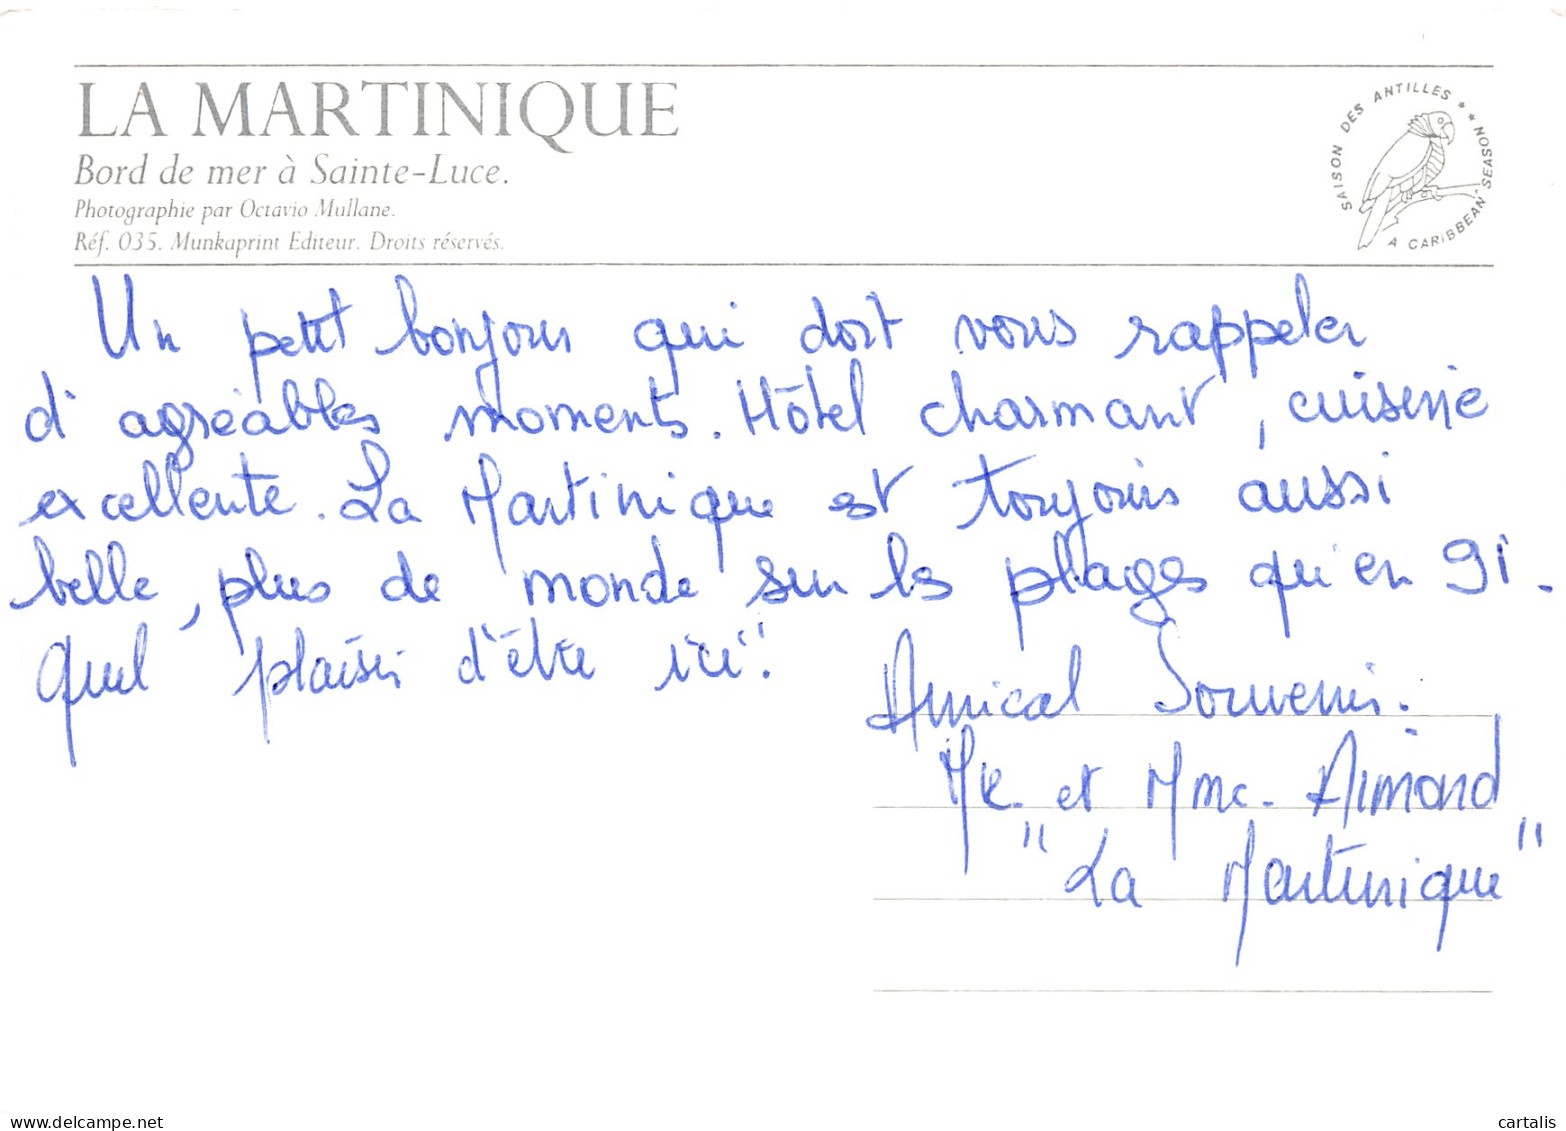 LA MARTINIQUE
Bord de mer à Sainte-Luce.
Photographie par Octavio Mullane.
Réf. 035. Munkaprint Editeur. Droits réservés.
SAISON DES ANTILLES ★★ A CARIBBEAN SEASON
Un petit bonjour qui doit vous rappeler
d'agréables moments. Hôtel charmant, cuisine
excellente. La Martinique est toujours aussi
belle, plus de monde sur les plages qu'en 91.
Quel plaisir d'être ici!
Amical Souvenir.
Mr. et Mme. Aimond
"La Martinique"
www.delcampe.net
cartalis